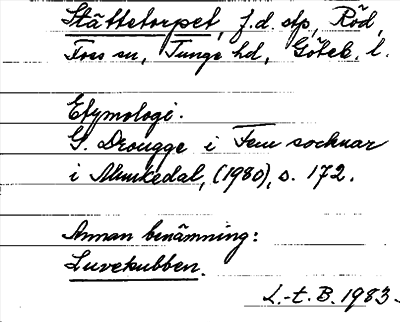 Stättetorpet, f.d. stp, Röd,
Foss sn, Tunge hd, Göteb. l.
Etymologi.
G. Drougge i Fem socknar
i Munkedal, (1980), s. 172.
Annan benämning:
Luvekubben.
L.-t. B. 1983.